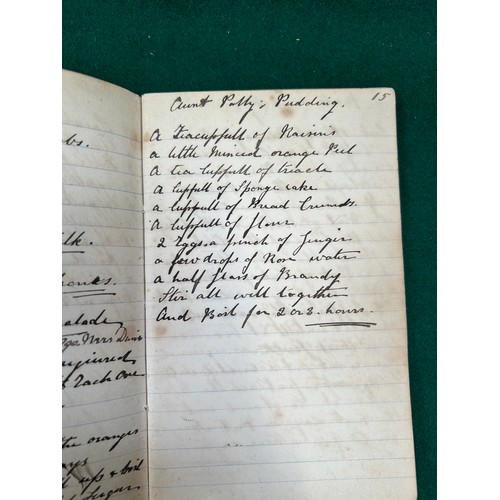 15
Aunt Polly's Pudding.
A Teacupfull of Raisins
a little Minced orange Peel
A tea cupfull of treacle
a cupfull of Sponge cake
a cupfull of Bread Crumbs.
A cupfull of flour
2 Eggs. a pinch of Ginger
a few drops of Rose water
a half glass of Brandy
Stir all well together
And Boil for 2 or 3 hours.
bs.
lk.
ones.
alade
Mrs
each One
the oranges
ays
up & boil
Sugar